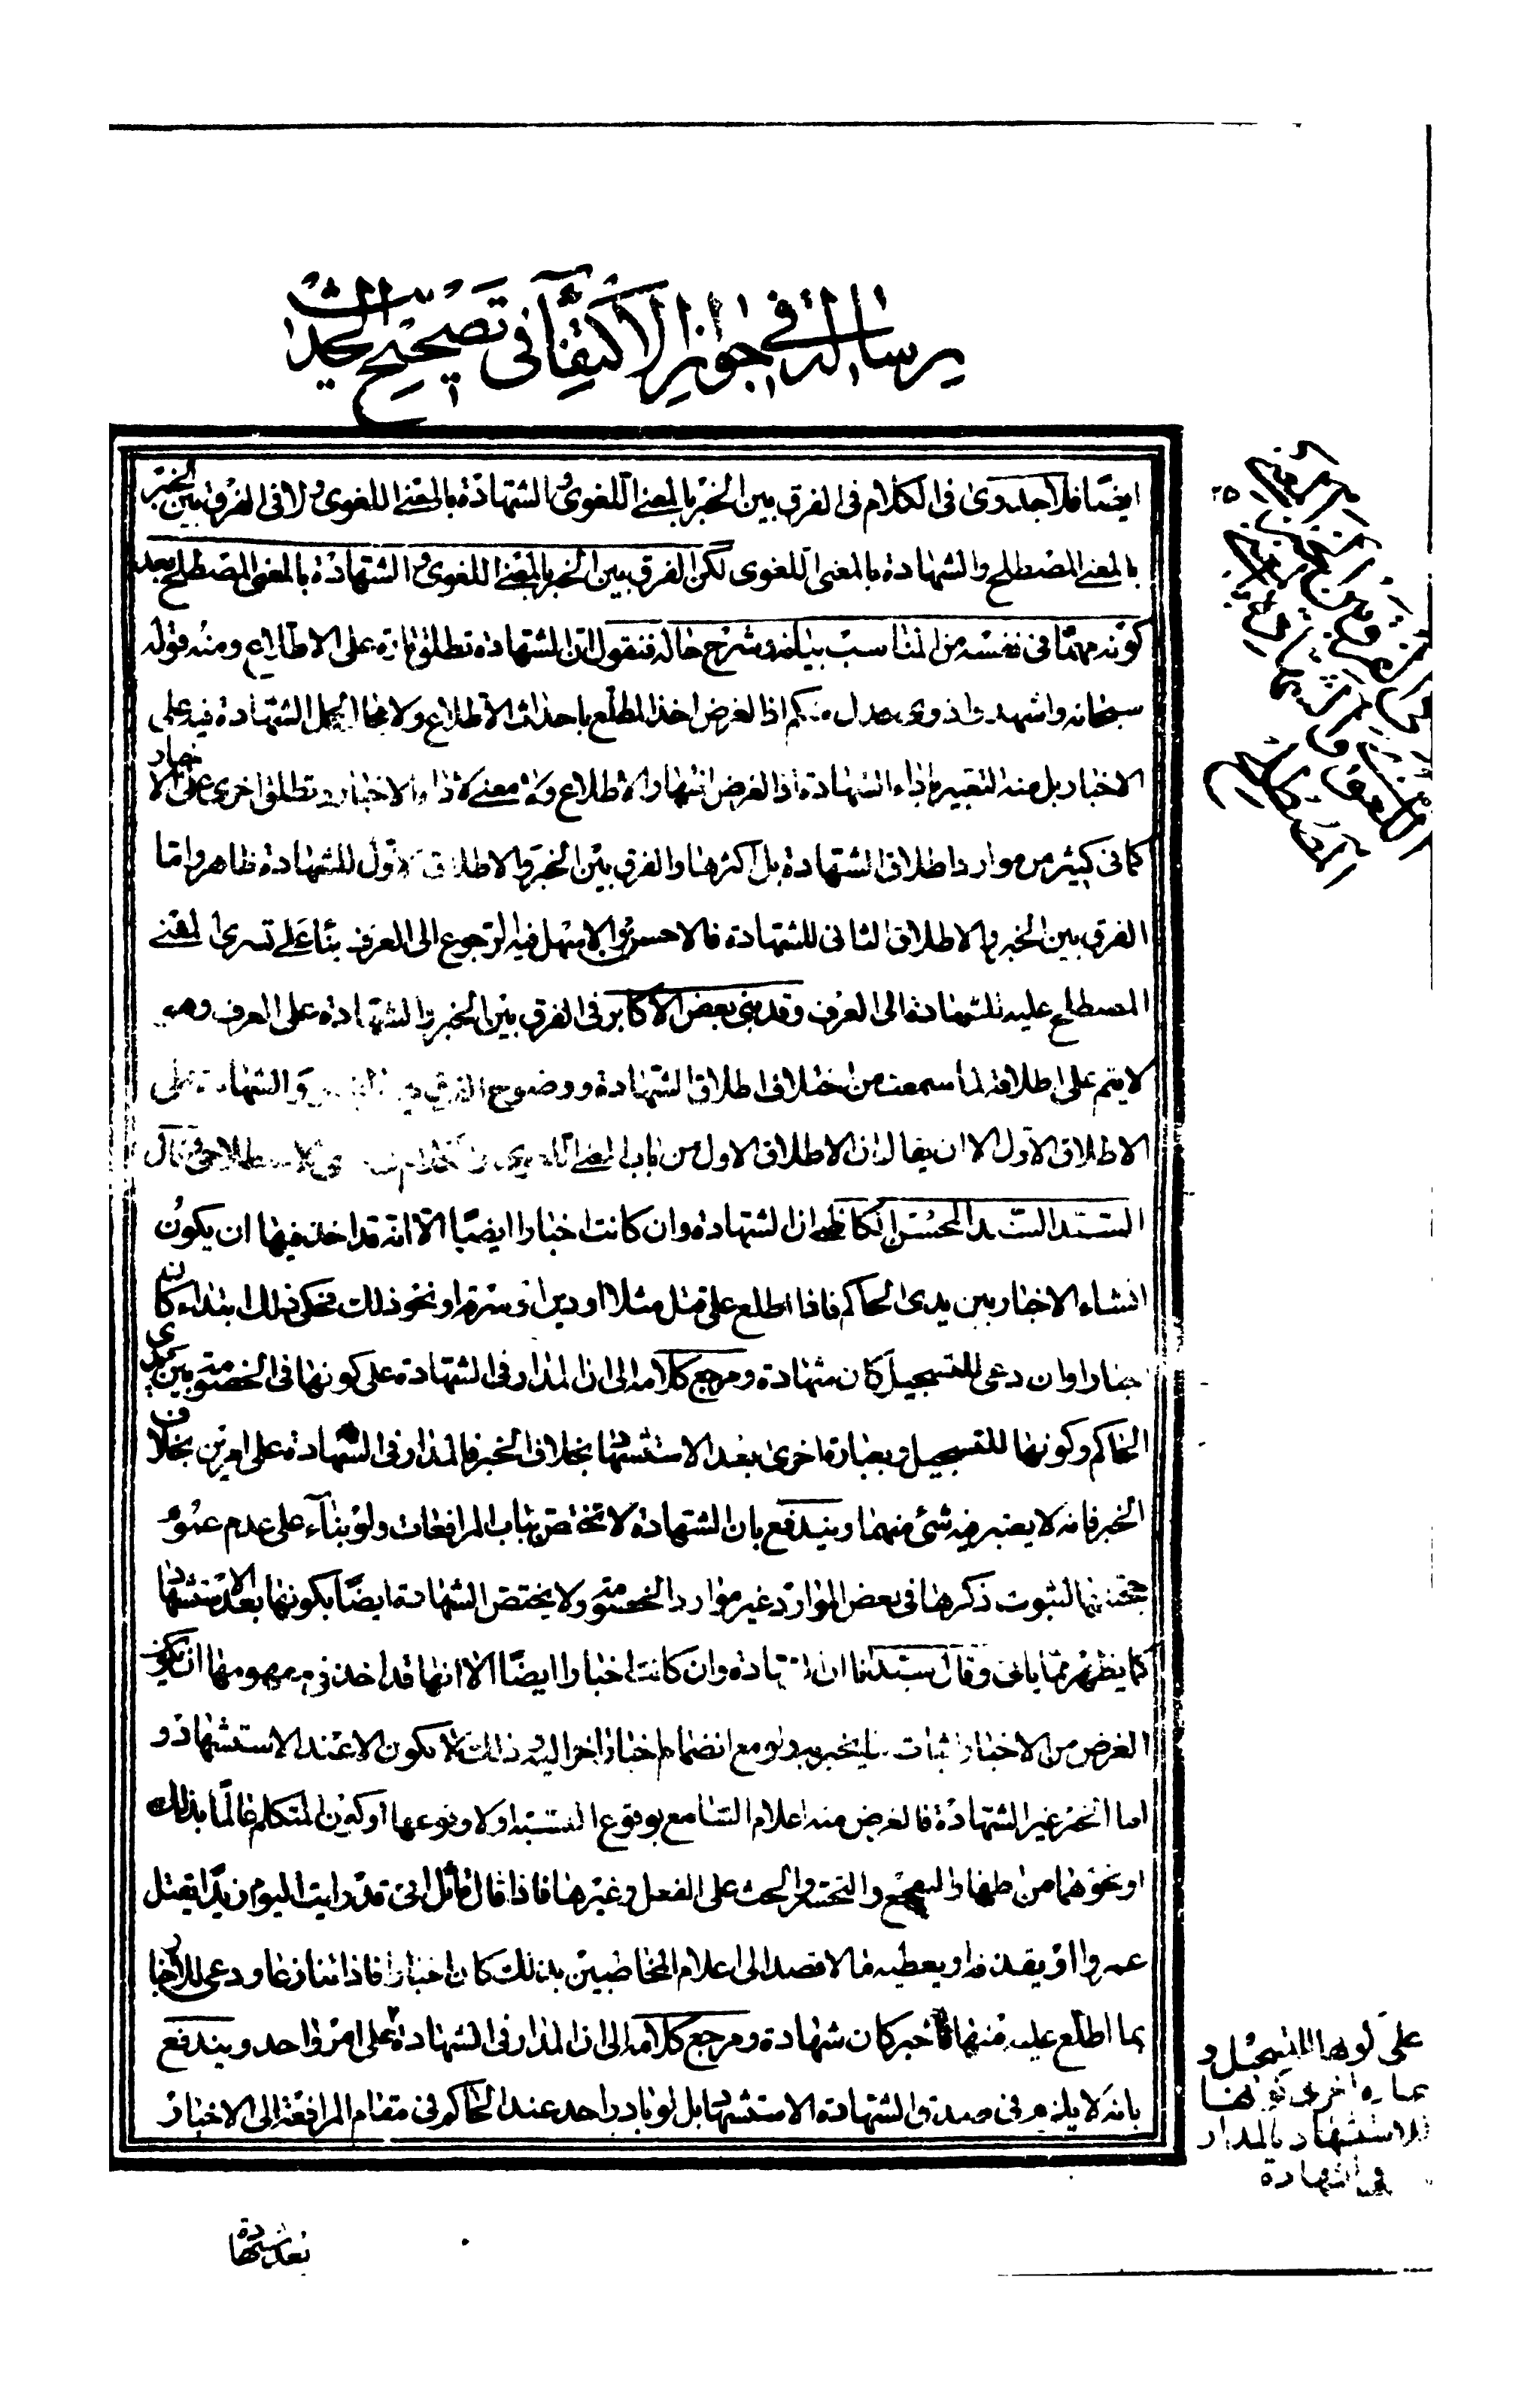 رسالة في جواز الاكتفاء في تصحيح الحديث
ايضا فلا جدوى في الكلام في الفرق بين الخبر بالمعنى اللغوى والشهادة بالمعنى اللغوى ولا في الفرق بين الخبر
بالمعنى المصطلح والشهادة بالمعنى اللغوى لكن الفرق بين الخبر بالمعنى اللغوى والشهادة بالمعنى المصطلح بعد
كونه مهما في نفسه من المناسب بيانه وشرح حاله فنقول ان الشهادة تطلق تارة على الاطلاع ومنه قوله
سبحانه واشهدوا ذوى عدل منكم اذ الغرض اخذ المطلع باحداث الاطلاع ولا مجال لحمل الشهادة فيه على
الاخبار بل منه التعبير باداء الشهادة اذ الغرض اظهار الاطلاع ولا معنى لاداء الاخبار وتطلق اخرى على الاخبار
كما في كثير من موارد اطلاق الشهادة بل اكثرها والفرق بين الخبر والاطلاق الاول للشهادة ظاهر واما
الفرق بين الخبر والاطلاق الثاني للشهادة فالاحسن بل الاسهل فيه الرجوع الى العرف بناء على تسرى المعنى
المصطلح عليه للشهادة الى العرف وقد بنى بعض الاكابر في الفرق بين الخبر والشهادة على العرف وهو
لا يتم على اطلاقه لما سمعت من اختلاف اطلاق الشهادة ووضوح الفرق بين الخبر والشهادة على
الاطلاق الاول الا ان يقال ان الاطلاق الاول من باب المعنى اللغوى الاصطلاحى وقال
السيد السند المحسن الكاظمى ان الشهادة وان كانت اخبارا ايضا الا انه قد اخذ فيها ان يكون
انشاء الاخبار بين يدى الحاكم فاذا اطلع على قتل مثلا او دين او سرقة او نحو ذلك فحكى ذلك ابتداء كان
اخبارا وان دعى للتسجيل كان شهادة ومرجع كلامه الى ان المدار في الشهادة على كونها في الخصومة وبين يدى
الحاكم وكونها للتسجيل وبعبارة اخرى بعد الاستشهاد بخلاف الخبر فالمدار في الشهادة على امرين بخلاف
الخبر فانه لا يعتبر فيه شئ منهما ويندفع بان الشهادة لا تختص بباب المرافعات ولو بناء على عدم عموم
حجيتها لثبوت ذكرها في بعض الموارد غير موارد الخصومة ولا يختص الشهادة ايضا بكونها بعد الاستشهاد
كما يظهر مما ياتى وقال سيدنا ان الشهادة وان كانت اخبارا ايضا الا انها قد اخذ في مفهومها ان يكون
الغرض من الاخبار اثبات ما يخبر به ولو مع انضمام اخبار اخر اليه وذلك لا يكون الا عند الاستشهاد و
اما الخبر غير الشهادة فالغرض منه اعلام السامع بوقوع النسبة او لا وقوعها او كون المتكلم عالما بذلك
او نحوهما من اظهار التفجع والتحسر والحث على الفعل وغيرها فاذا قال قائل انى قد رايت اليوم زيدا يقتل
عمروا او يقذفه او يعطيه مالا قصدا الى اعلام المخاطبين بذلك كان اخبارا فاذا تنازعا ودعى للاخبار
بما اطلع عليه منهما فاخبر كان شهادة ومرجع كلامه الى ان المدار في الشهادة على امر واحد ويندفع
بانه لا يلزم في صدق الشهادة الاستشهاد بل لو بادر واحد عند الحاكم في مقام المرافعة الى الاخبار
على كونها للتسجيل و
بعبارة اخرى كونها
للاستشهاد فالمدار
في الشهادة
بعد شهادة